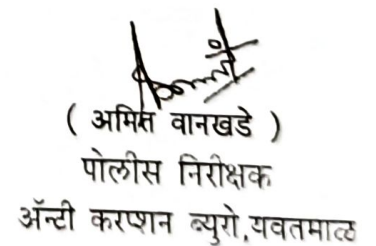 ( अमित वानखडे )
पोलीस निरीक्षक
ॲन्टी करप्शन ब्युरो,यवतमाळ